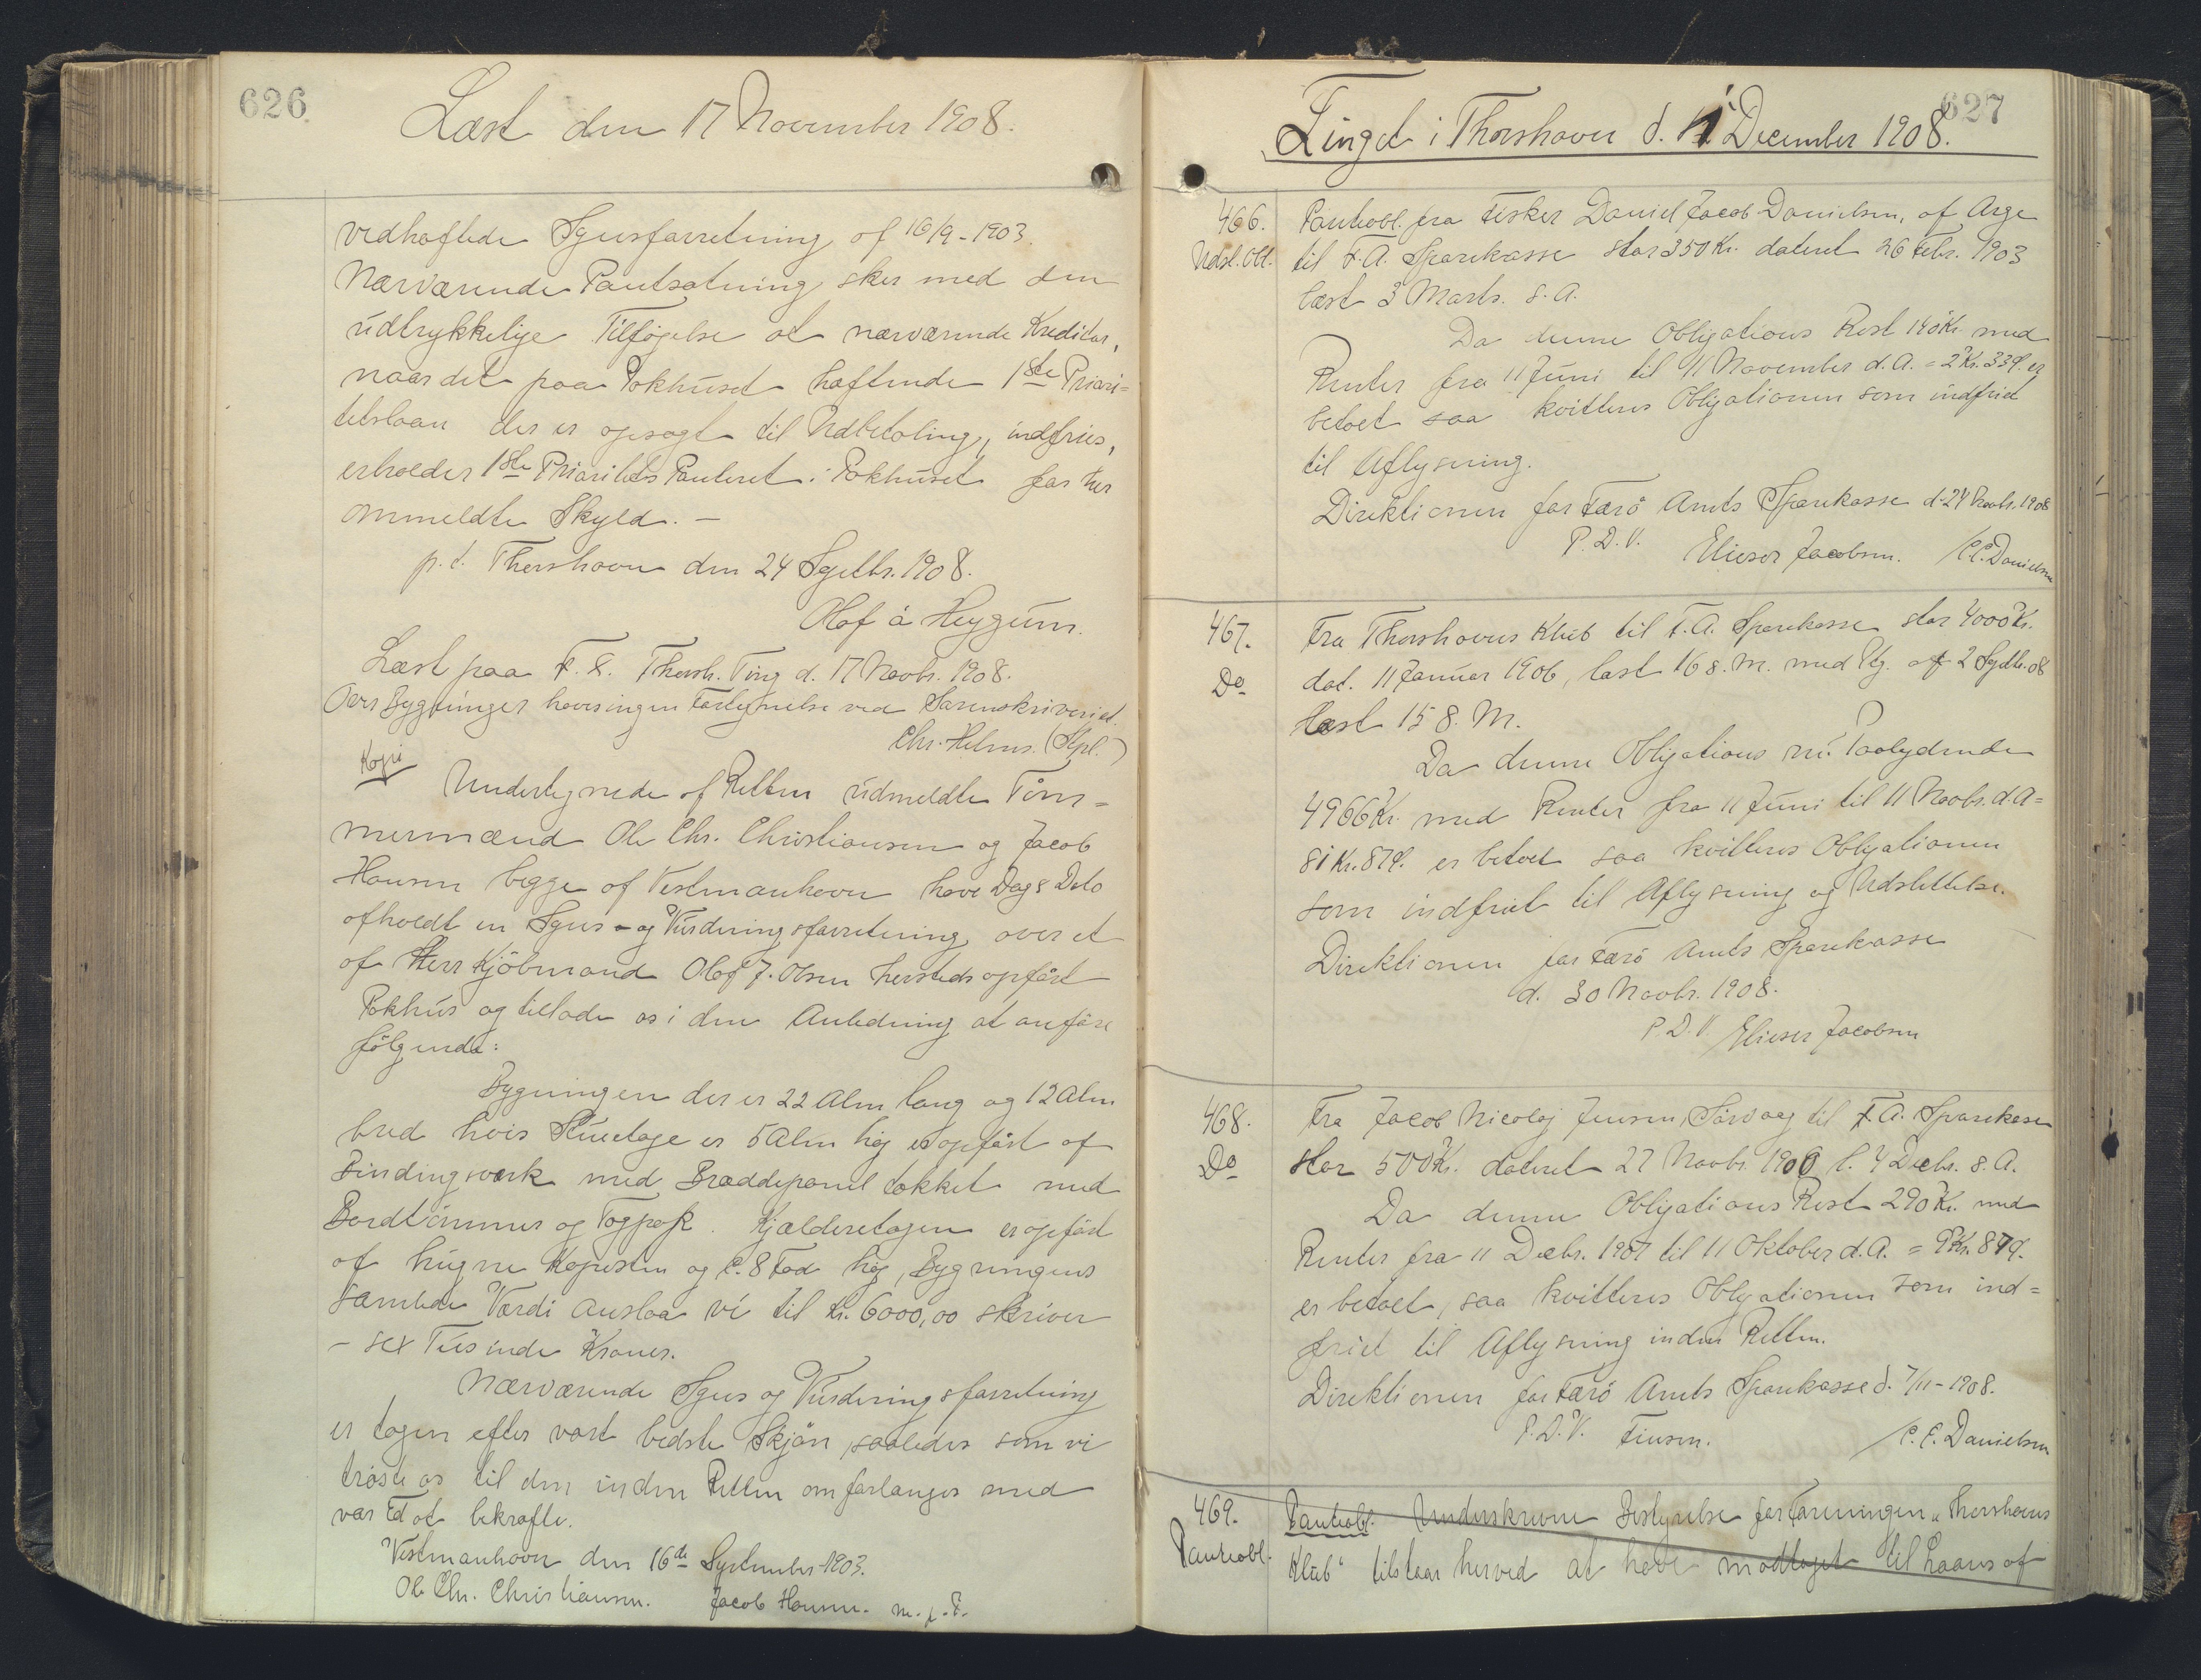 626.
Læst den 17 November 1908.
vedhæftede Synsforretning af 16/9-1903.
Nærværende Pantsætning sker med den
udtrykkelige Tilføjelse at nærværende Kreditor,
naar det paa Pakhuset hæftende 1ste Priori=
tetslaan der er opsagt til Udbetaling, indfries,
erholder 1ste Prioritets Panteret i Pakhuset for her
ommeldte Skyld. -
p. t. Thorshavn den 24 Septbr. 1908.
Olof á Heygum.
Læst paa F. X. Thorsh. Ting d. 17 Novbr. 1908.
Over Bygninger haves ingen Fortegnelse ved Sorenskriveriet.
Chr. Helms. (Stpl.)
Kopi
Undertegnede af Retten udmeldte Töm=
mermænd Ole Chr. Christiansen og Jacob
Hansen begge af Vestmanhavn have Dags Dato
afholdt en Syns- og Vurderingsforretning over et
af Herr Kjöbmand Olof J. Olsen hersteds opfört
Pakhus og tillade os i den Anledning at anföre
fölgende:
Bygningen der er 22 Alen lang og 12 Alen
bred hvis Stueetage er 5 Alen höj er opfört af
Bindingsværk med Bræddepanel tækket med
Bordtömmer og Tagpap. Kjælderetagen er opfört
af hugne Kopesten og c. 8 Fod höj, Bygningens
samlede Værdi anslaa vi til Kr. 6000,00 skriver
- sex Tusinde Kroner.
Nærværende Syns og Vurderingsforretning
er tagen efter vort bedste Skjön saaledes som vi
tröste os til den inden Retten om forlanges med
vor Ed at bekræfte.
Vestmanhavn den 16de September 1903.
Ole Chr. Christiansen. Jacob Hansen. m. f. P.
627
Tinget i Thorshavn d. 1 December 1908.
466. Panteobl. fra Fisker Daniel Jacob Danielsen, af Arge
Udsl. Obl. til F. A. Sparekasse stor 350 Kr. dateret 26 Febr. 1903
læst 3 Marts. s. A.
Da denne Obligations Rest 140 Kr. med
Renter fra 11 Juni til 11 November d. A. = 2 Kr. 33 Ø. er
betalt saa kvitteres Obligationen som indfriet
til Aflysning.
Direktionen for Færö Amts Sparekasse d. 24 Novbr. 1908
P. D. V. Elieser Jacobsen. / C. C. Danielsen
467. Fra Thorshavns Klub til F. A. Sparekasse stor 4000 Kr.
Do dat. 11 Januar 1906, læst 16 s. M. med Ptg. af 2 Septbr. 08
læst 15 s. M.
Da denne Obligations nu. Paalydende
4966 Kr. med Renter fra 11 Juni til 11 Novbr. d. A =
81 Kr. 87 Ø. er betalt saa kvitteres Obligationen
som indfriet til Aflysning og Udslettelse.
Direktionen for Færö Amts Sparekasse
d. 30 Novbr. 1908.
P. D. V. Elieser Jacobsen
468. Fra Jacob Nicolaj Jensen, Sörvaag til F. A. Sparekasse
Do stor 500 Kr. dateret 27 Novbr. 1900 l. 4 Decbr. s. A.
Da denne Obligations Rest 290 Kr. med
Renter fra 11 Decbr. 1907 til 11 Oktober d. A. = 9 Kr. 87 Ø.
er betalt, saa kvitteres Obligationen som ind=
friet til Aflysning inden Retten.
Direktionen for Færö Amts Sparekasse d. 7/11-1908.
P. D. V. Finsen. / C. C. Danielsen
469. Panteobl. Underskrevne Bestyrelse for Foreningen „Thorshavns
Panteobl. Klub“ tilstaar herved at have modtaget til Laans af